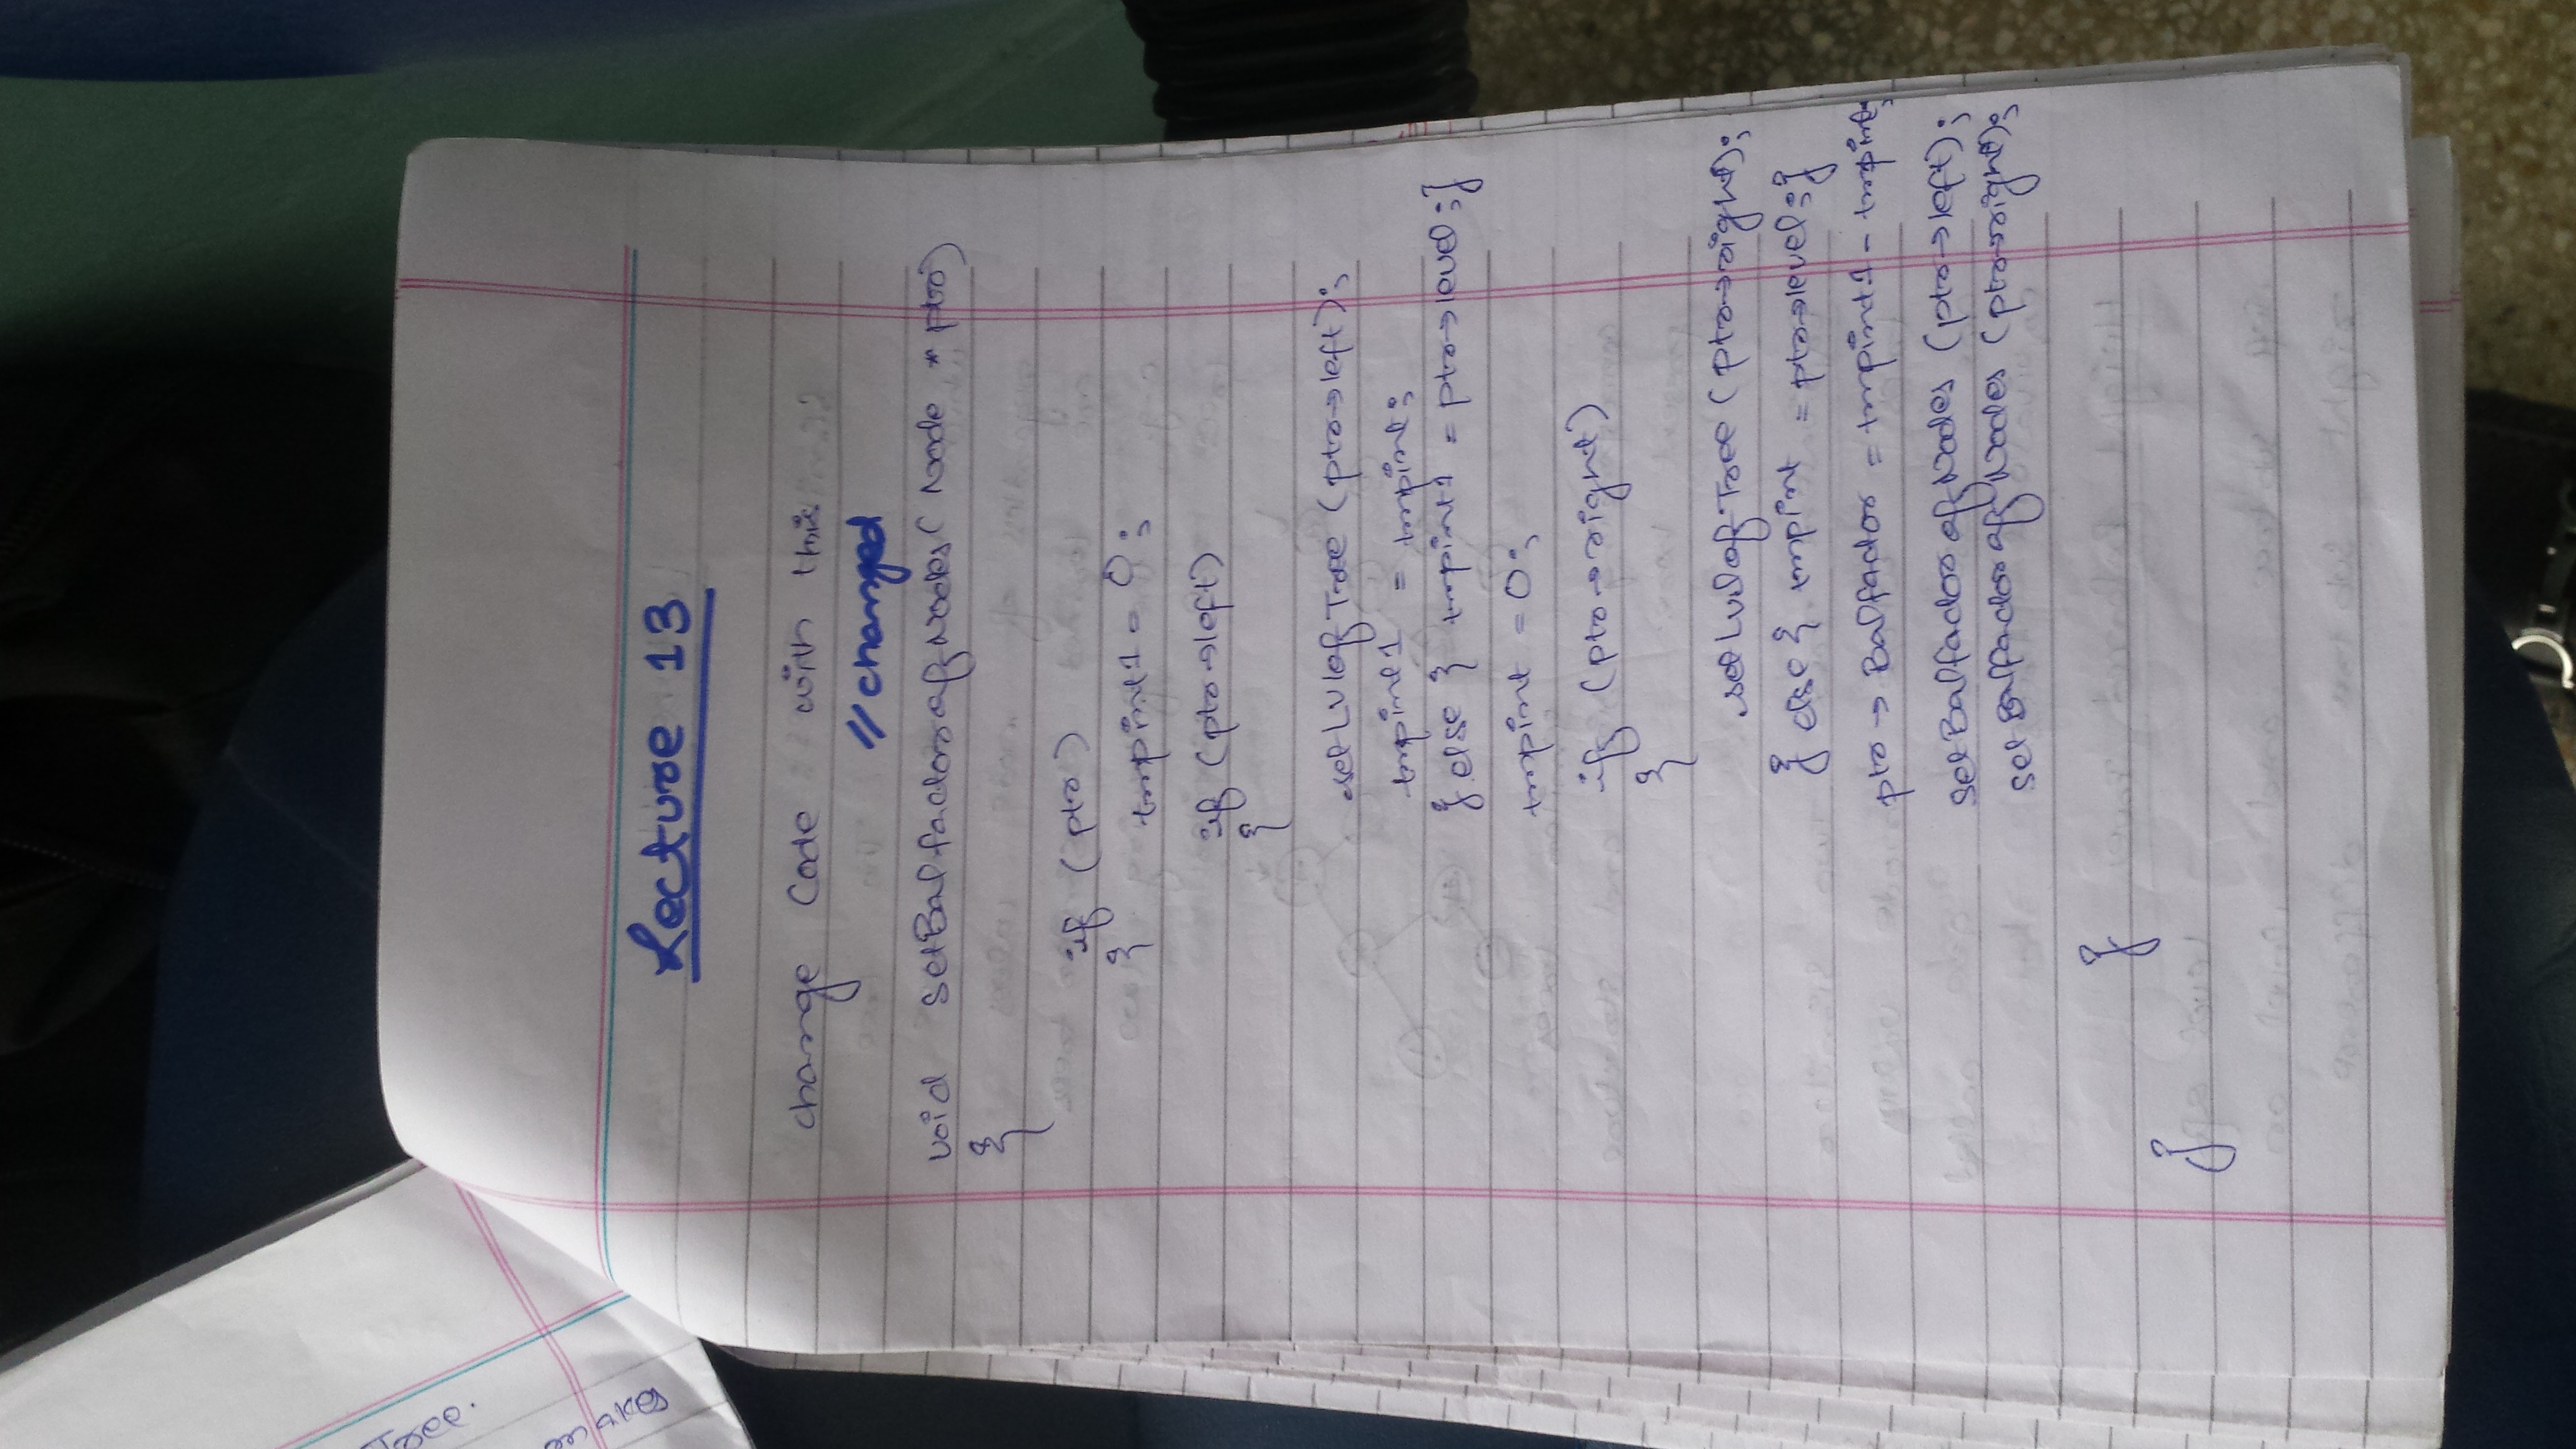 Tree.
makes
Lecture 13
change Code with this
//changed
void setBalfactorofNodes( Node * ptr)
{
if (ptr)
{ tmpint1 = 0;
if (ptr->left)
{
setLvlofTree (ptr->left);
tmpint1 = tmpint;
} else { tmpint1 = ptr->level;}
tmpint = 0;
if (ptr->right)
{
setLvlofTree (ptr->right);
} else { tmpint = ptr->level;}
ptr -> Balfactor = tmpint1 - tmpint;
setBalfactorofNodes (ptr->left);
setBalfactorofNodes (ptr->right);
}
}